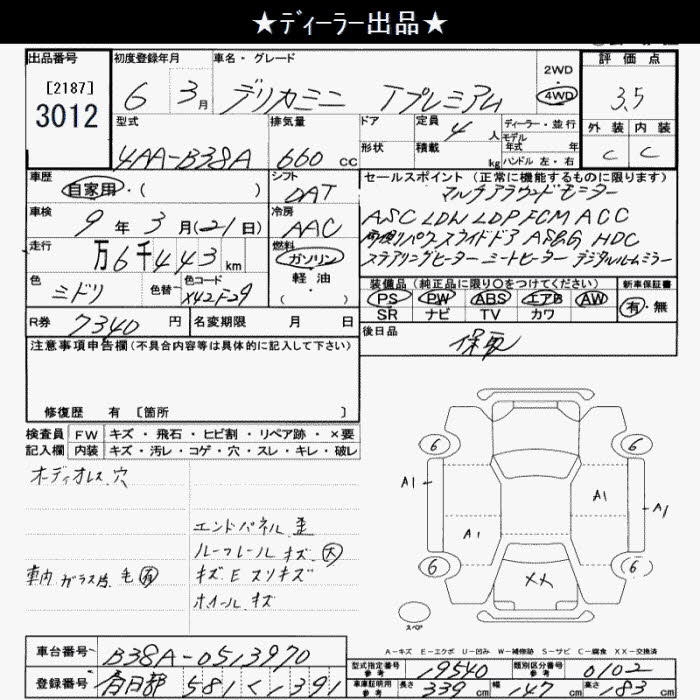 ★ディーラー出品★
出品番号
[2187]
3012
初度登録年月
6 3月
車名・グレード
デリカミニ Tプレミアム
2WD
4WD
評価点
3.5
外装 内装
C C
型式
4AA-B38A
排気量
660 cc
ドア
形状
定員 4 人
積載 kg
ディーラー・並行
モデル年式 年式
ハンドル 左・右
車歴
自家用・( )
シフト
DAT
セールスポイント(正常に機能するものに限ります)
マルチアラウンドモニター
ASC LDW LDP FCM ACC
両側リパワースライドドア AS&G HDC
ステアリングヒーター シートヒーター デジタルルームミラー
車検
9年 3月(21日)
冷房
AAC
走行
万6千443km
燃料
ガソリン
軽油
・
( )
色
ミドリ
色替
色コード
X42F29
装備品(純正品に限り○をつけてください)
PS PW ABS エアB AW
SR ナビ TV カワ
新車保証書
有・無
R券
7340円
名変期限 月 日
後日品
注意事項申告欄(不具合内容等は具体的に記入して下さい)
修復歴 有 [箇所 ]
検査員記入欄
FW キズ・飛石・ヒビ割・リペア跡・×要
内装 キズ・汚レ・コゲ・穴・スレ・キレ・破レ
オーディオレス穴
エンドパネル歪
ルーフレールキズ(大)
車内 ガラス 毛(有)
キズEスリキズ
ホイールキズ
6 6
A1 A1 A1
A1
6 6
XX
スペア
A-キズ E-エクボ U-凹み W-補修跡 S-サビ C-腐食 XX-交換済
車台番号
B38A-0513970
登録番号
春日部 581 く 1391
型式指定番号 参考
19540
類別区分番号 参考
0102
車庫証明用 参考
長さ 339cm 幅 147cm 高さ 183cm